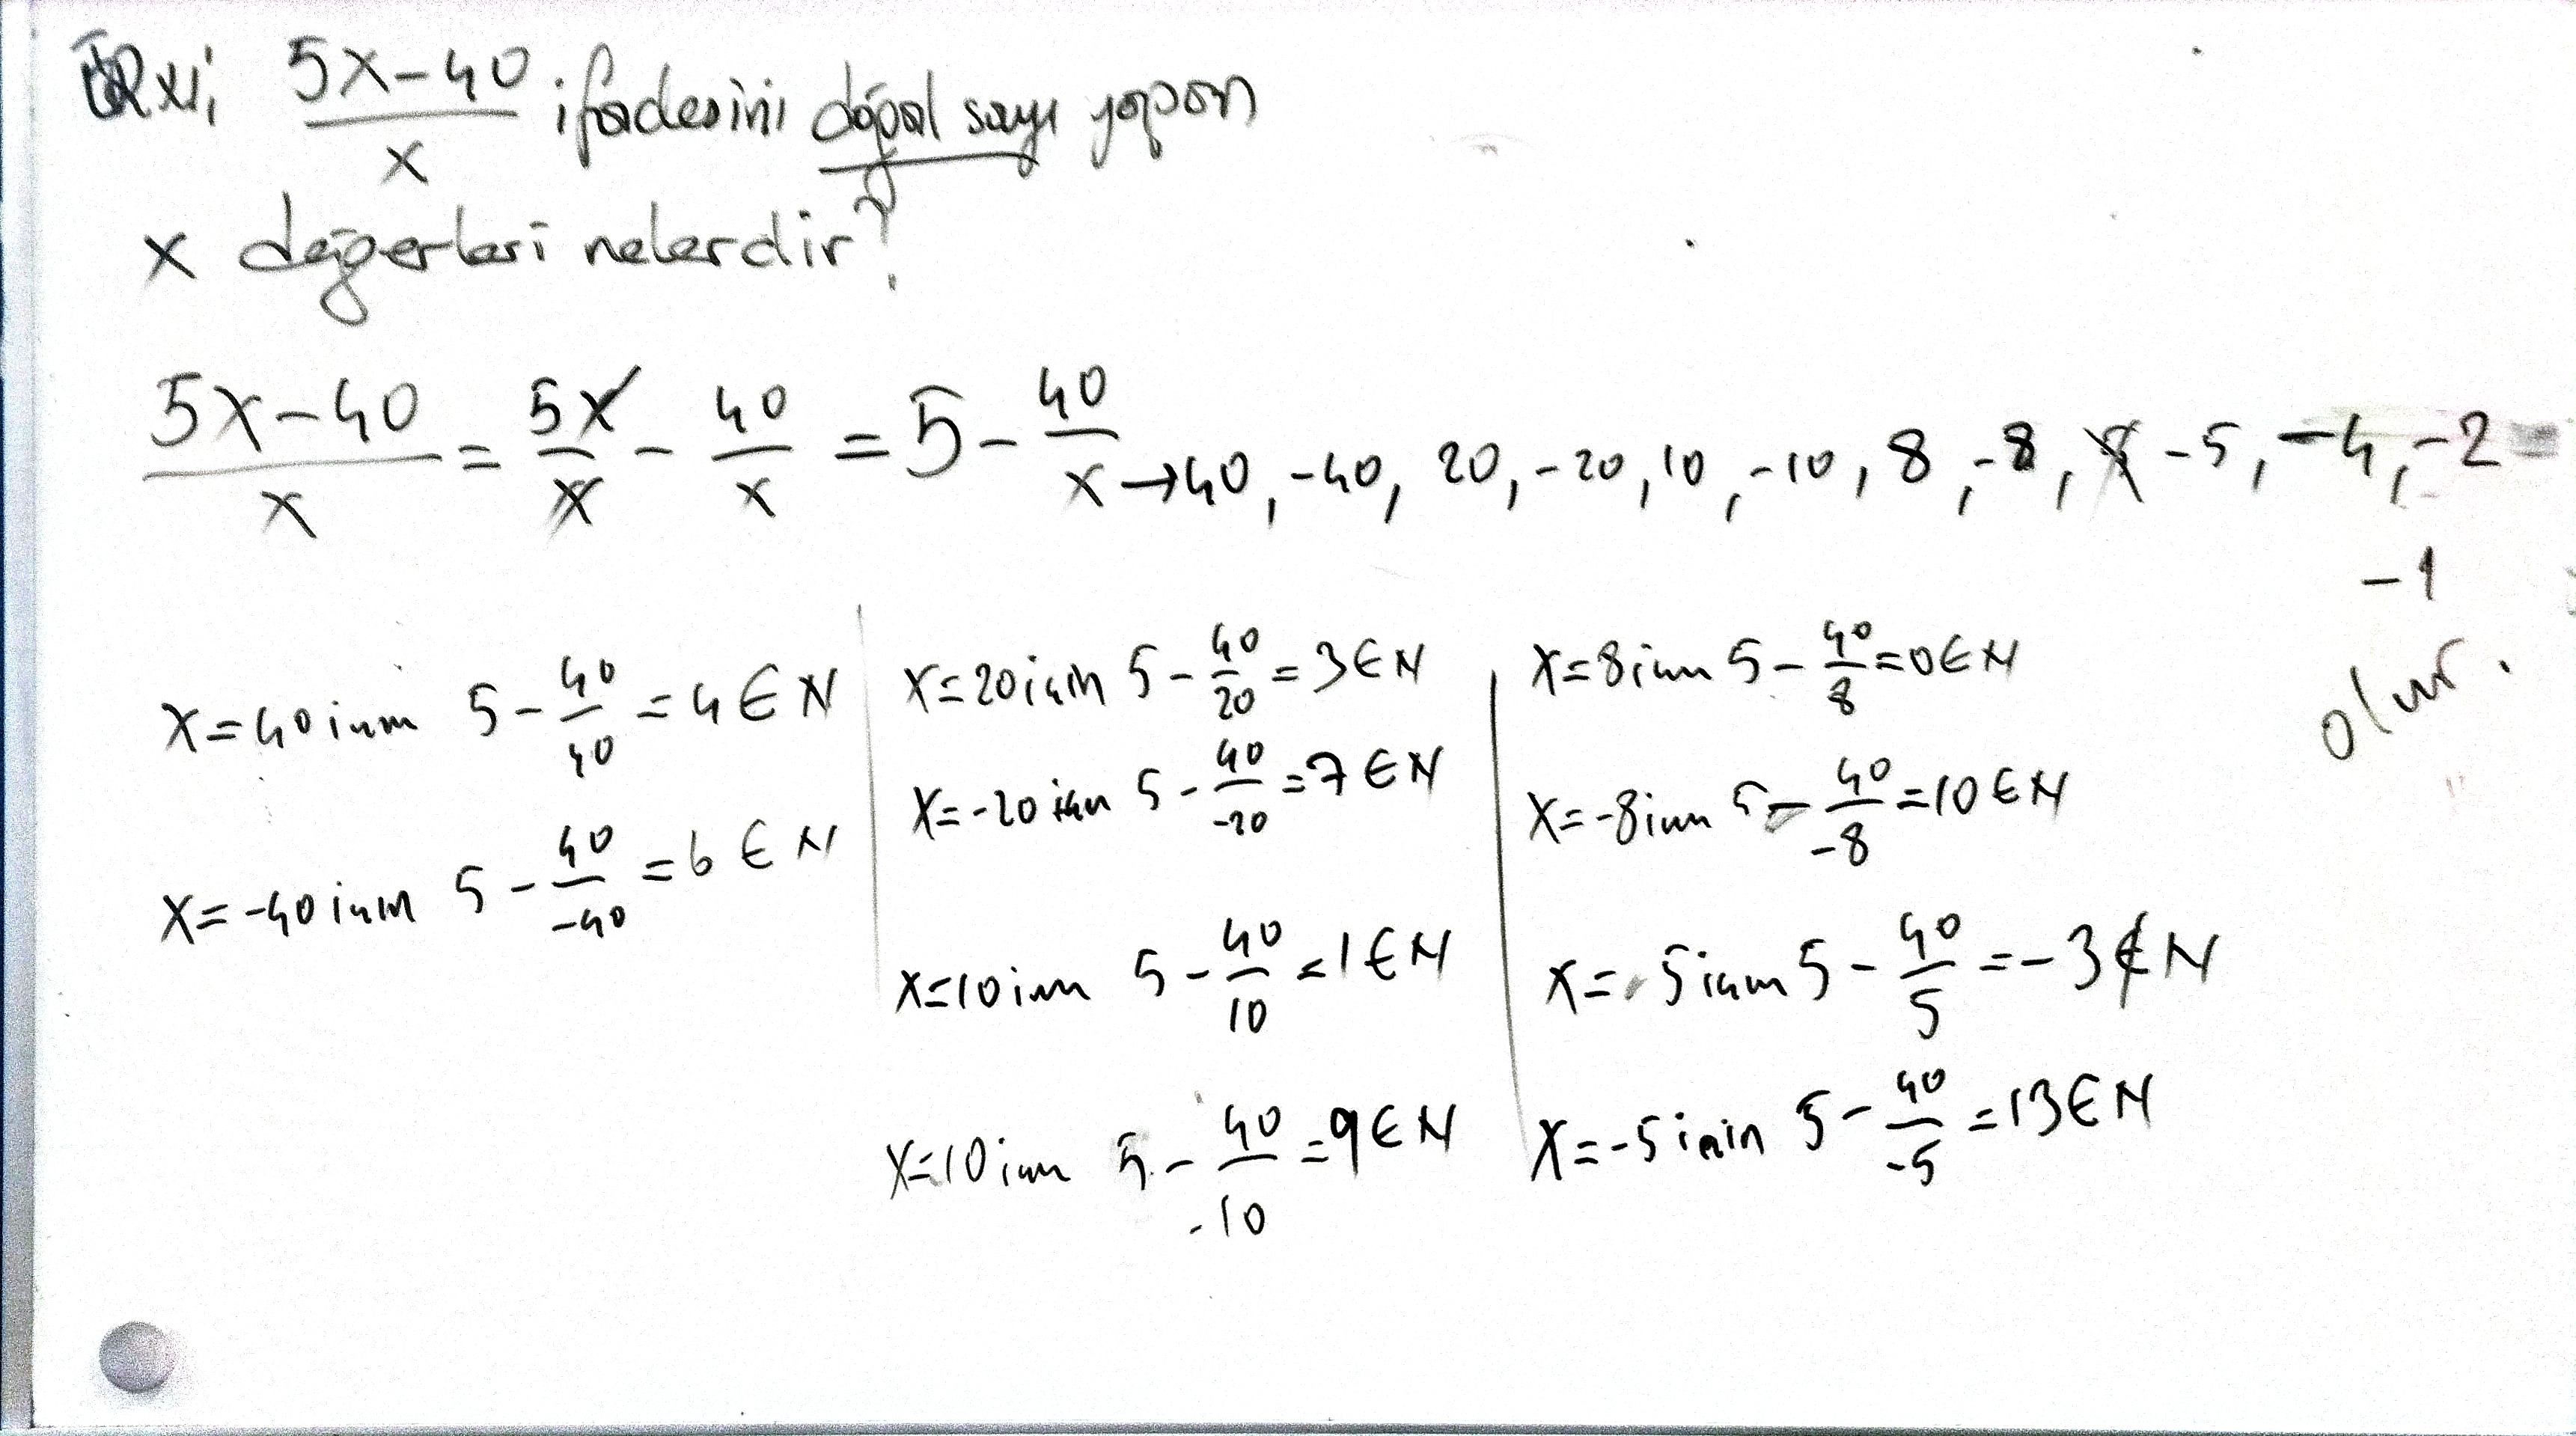 ÖRX1; (5x-40)/x ifadesini doğal sayı yapan
x değerleri nelerdir?
(5x-40)/x = 5x/x - 40/x = 5 - 40/x → 40, -40, 20, -20, 10, -10, 8, -8, -5, -4, -2
-1
olur.
x=40 için 5 - 40/40 = 4 ∈ N
x=-40 için 5 - 40/-40 = 6 ∈ N
x=20 için 5 - 40/20 = 3 ∈ N
x=-20 için 5 - 40/-20 = 7 ∈ N
x=10 için 5 - 40/10 = 1 ∈ N
x=10 için 5 - 40/-10 = 9 ∈ N
x=8 için 5 - 40/8 = 0 ∈ N
x=-8 için 5 - 40/-8 = 10 ∈ N
x=5 için 5 - 40/5 = -3 ∉ N
x=-5 için 5 - 40/-5 = 13 ∈ N